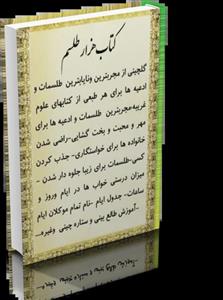 کتاب هزار طلسم
گلچینی از مجربترین ونایابترین طلسمات و
ادعیه ها برای هر طبعی از کتابهای علوم
غریبه-مجربترین طلسمات و ادعیه ها برای
مهر و محبت و بخت گشایی-راضی شدن
خانواده ها برای خواستگاری- جذب کردن
کسی-طلسمات برای زیبا جلوه دار شدن -
میزان درستی خواب ها در ایام وروز و
ساعات- جدول ایام -نام تمام موکلان ایام
-آموزش طالع بینی و ستاره چینی وغیره...